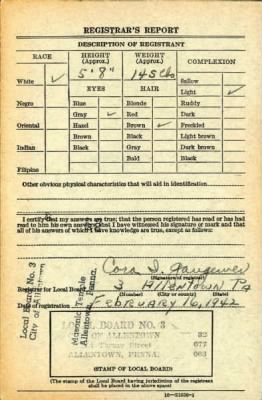 REGISTRAR'S REPORT
DESCRIPTION OF REGISTRANT
RACE
HEIGHT (Approx.)
WEIGHT (Approx.)
COMPLEXION
5' 8"
145 lbs
White ✓
Sallow
EYES
HAIR
Light ✓
Negro
Blue
Blonde
Ruddy
Gray ✓
Red
Dark
Oriental
Hazel
Brown ✓
Freckled
Brown
Black
Light brown
Indian
Black
Gray
Dark brown
Bald
Black
Filipino
Other obvious physical characteristics that will aid in identification
I certify that my answers are true; that the person registered has read or has had
read to him his own answers; that I have witnessed his signature or mark and that
all of his answers of which I have knowledge are true, except as follows:
Local Board No. 3
City of Allentown
Masonic Temple
Allentown, Penna.
Cora I. Gangewer
(Signature of registrar)
Registrar for Local Board 3 ALLENTOWN PA
(Number) (City or county) (State)
Date of registration FEBRUARY 16, 1942
LOCAL BOARD NO. 3
OF ALLENTOWN 32
Street 077
ALLENTOWN, PENNA. 003
(STAMP OF LOCAL BOARD)
(The stamp of the Local Board having jurisdiction of the registrant
shall be placed in the above space)